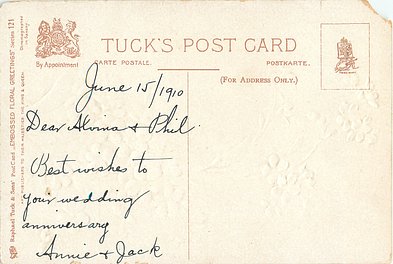 TUCK'S POST CARD
CARTE POSTALE.
POSTKARTE.
(FOR ADDRESS ONLY.)
By Appointment
Raphael Tuck & Sons' Post Card "EMBOSSED FLORAL GREETINGS" Series 121
June 15/1910
Dear Alvina & Phil
Best wishes to
your wedding
anniversary
Annie & Jack